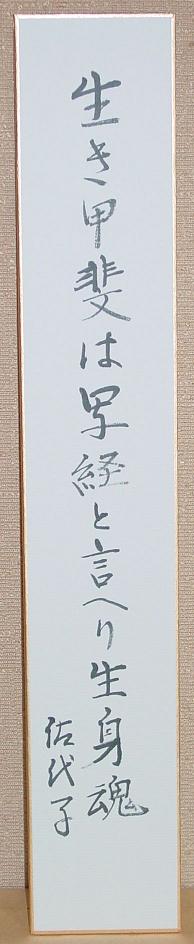 生き甲斐は写経と言へり生身魂
佐代子